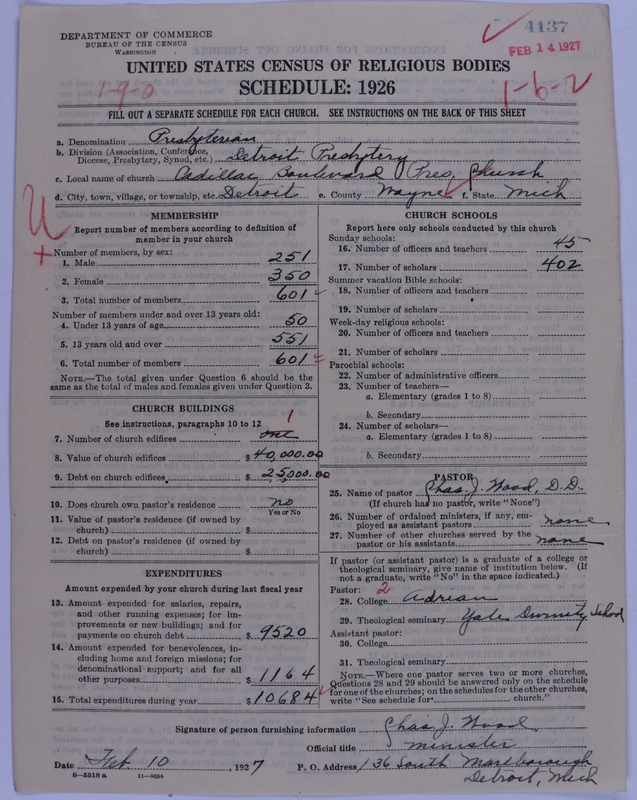 4137
FEB 14 1927
DEPARTMENT OF COMMERCE
BUREAU OF THE CENSUS
WASHINGTON
UNITED STATES CENSUS OF RELIGIOUS BODIES
SCHEDULE: 1926
1-9-0
1-6-2
FILL OUT A SEPARATE SCHEDULE FOR EACH CHURCH. SEE INSTRUCTIONS ON THE BACK OF THIS SHEET
a. Denomination Presbyterian
b. Division (Association, Conference, Diocese, Presbytery, Synod, etc.) Detroit Presbytery
c. Local name of church Cadillac Boulevard Pres. Church
d. City, town, village, or township, etc. Detroit e. County Wayne f. State Mich
MEMBERSHIP
Report number of members according to definition of
member in your church
Number of members, by sex:
1. Male 251
2. Female 350
3. Total number of members 601
Number of members under and over 13 years old:
4. Under 13 years of age 50
5. 13 years old and over 551
6. Total number of members 601
NOTE.—The total given under Question 6 should be
same as the total of males and females given under Question 3.
CHURCH BUILDINGS
See instructions, paragraphs 10 to 12
1
7. Number of church edifices one
8. Value of church edifices $40,000.00
9. Debt on church edifices $25,000.00
10. Does church own pastor's residence no
Yes or No
11. Value of pastor's residence (if owned by
church) $
12. Debt on pastor's residence (if owned by
church) $
EXPENDITURES
Amount expended by your church during last fiscal year
13. Amount expended for salaries, repairs,
and other running expenses; for im-
provements or new buildings; and for
payments on church debt $9520
14. Amount expended for benevolences, in-
cluding home and foreign missions; for
denominational support; and for all
other purposes $1164
15. Total expenditures during year $10684
CHURCH SCHOOLS
Report here only schools conducted by this church
Sunday schools:
16. Number of officers and teachers 45
17. Number of scholars 402
Summer vacation Bible schools:
18. Number of officers and teachers
19. Number of scholars
Week-day religious schools:
20. Number of officers and teachers
21. Number of scholars
Parochial schools:
22. Number of administrative officers
23. Number of teachers—
a. Elementary (grades 1 to 8)
b. Secondary
24. Number of scholars—
a. Elementary (grades 1 to 8)
b. Secondary
PASTOR
25. Name of pastor Chas. J. Wood, D.D.
(If church has no pastor, write "None")
26. Number of ordained ministers, if any, em-
ployed as assistant pastors none
27. Number of other churches served by the
pastor or his assistants none
If pastor (or assistant pastor) is a graduate of a college or
theological seminary, give name of institution below. (If
not a graduate, write "No" in the space indicated.)
Pastor: 2
28. College Adrian
29. Theological seminary Yale Divinity School
Assistant pastor:
30. College
31. Theological seminary
NOTE.—Where one pastor serves two or more churches,
Questions 28 and 29 should be answered only on the schedule
for one of the churches; on the schedules for the other churches,
write "See schedule for church."
Signature of person furnishing information Chas J. Wood
Official title minister
Date Feb 10 1927 P. O. Address 136 South Marlborough
Detroit, Mich
8-5518a 11-9054